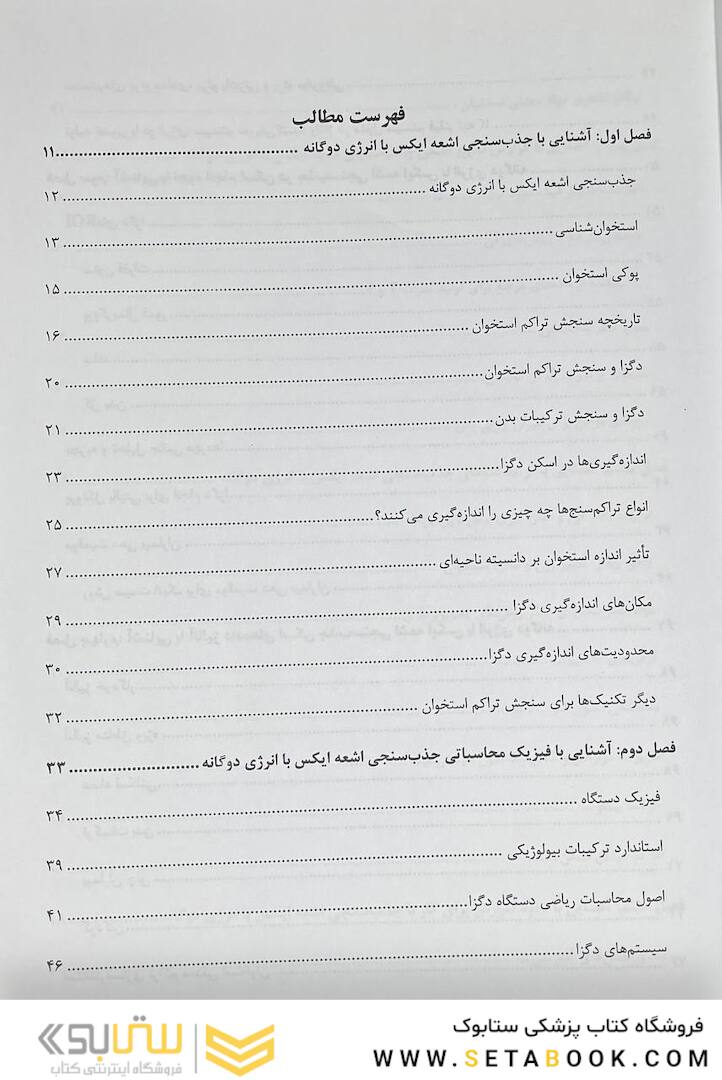 فهرست مطالب
فصل اول: آشنایی با جذب‌سنجی اشعه ایکس با انرژی دوگانه ........ ۱۱
جذب‌سنجی اشعه ایکس با انرژی دوگانه ........ ۱۲
استخوان‌شناسی ........ ۱۳
پوکی استخوان ........ ۱۵
تاریخچه سنجش تراکم استخوان ........ ۱۶
دگزا و سنجش تراکم استخوان ........ ۲۰
دگزا و سنجش ترکیبات بدن ........ ۲۱
اندازه‌گیری‌ها در اسکن دگزا ........ ۲۳
انواع تراکم‌سنج‌ها چه چیزی را اندازه‌گیری می‌کنند؟ ........ ۲۵
تأثیر اندازه استخوان بر دانسیته ناحیه‌ای ........ ۲۷
مکان‌های اندازه‌گیری دگزا ........ ۲۹
محدودیت‌های اندازه‌گیری دگزا ........ ۳۰
دیگر تکنیک‌ها برای سنجش تراکم استخوان ........ ۳۲
فصل دوم: آشنایی با فیزیک محاسباتی جذب‌سنجی اشعه ایکس با انرژی دوگانه ........ ۳۳
فیزیک دستگاه ........ ۳۴
استاندارد ترکیبات بیولوژیکی ........ ۳۹
اصول محاسبات ریاضی دستگاه دگزا ........ ۴۱
سیستم‌های دگزا ........ ۴۶
فروشگاه کتاب پزشکی ستابوک
WWW.SETABOOK.COM
ستابوک
فروشگاه اینترنتی کتاب